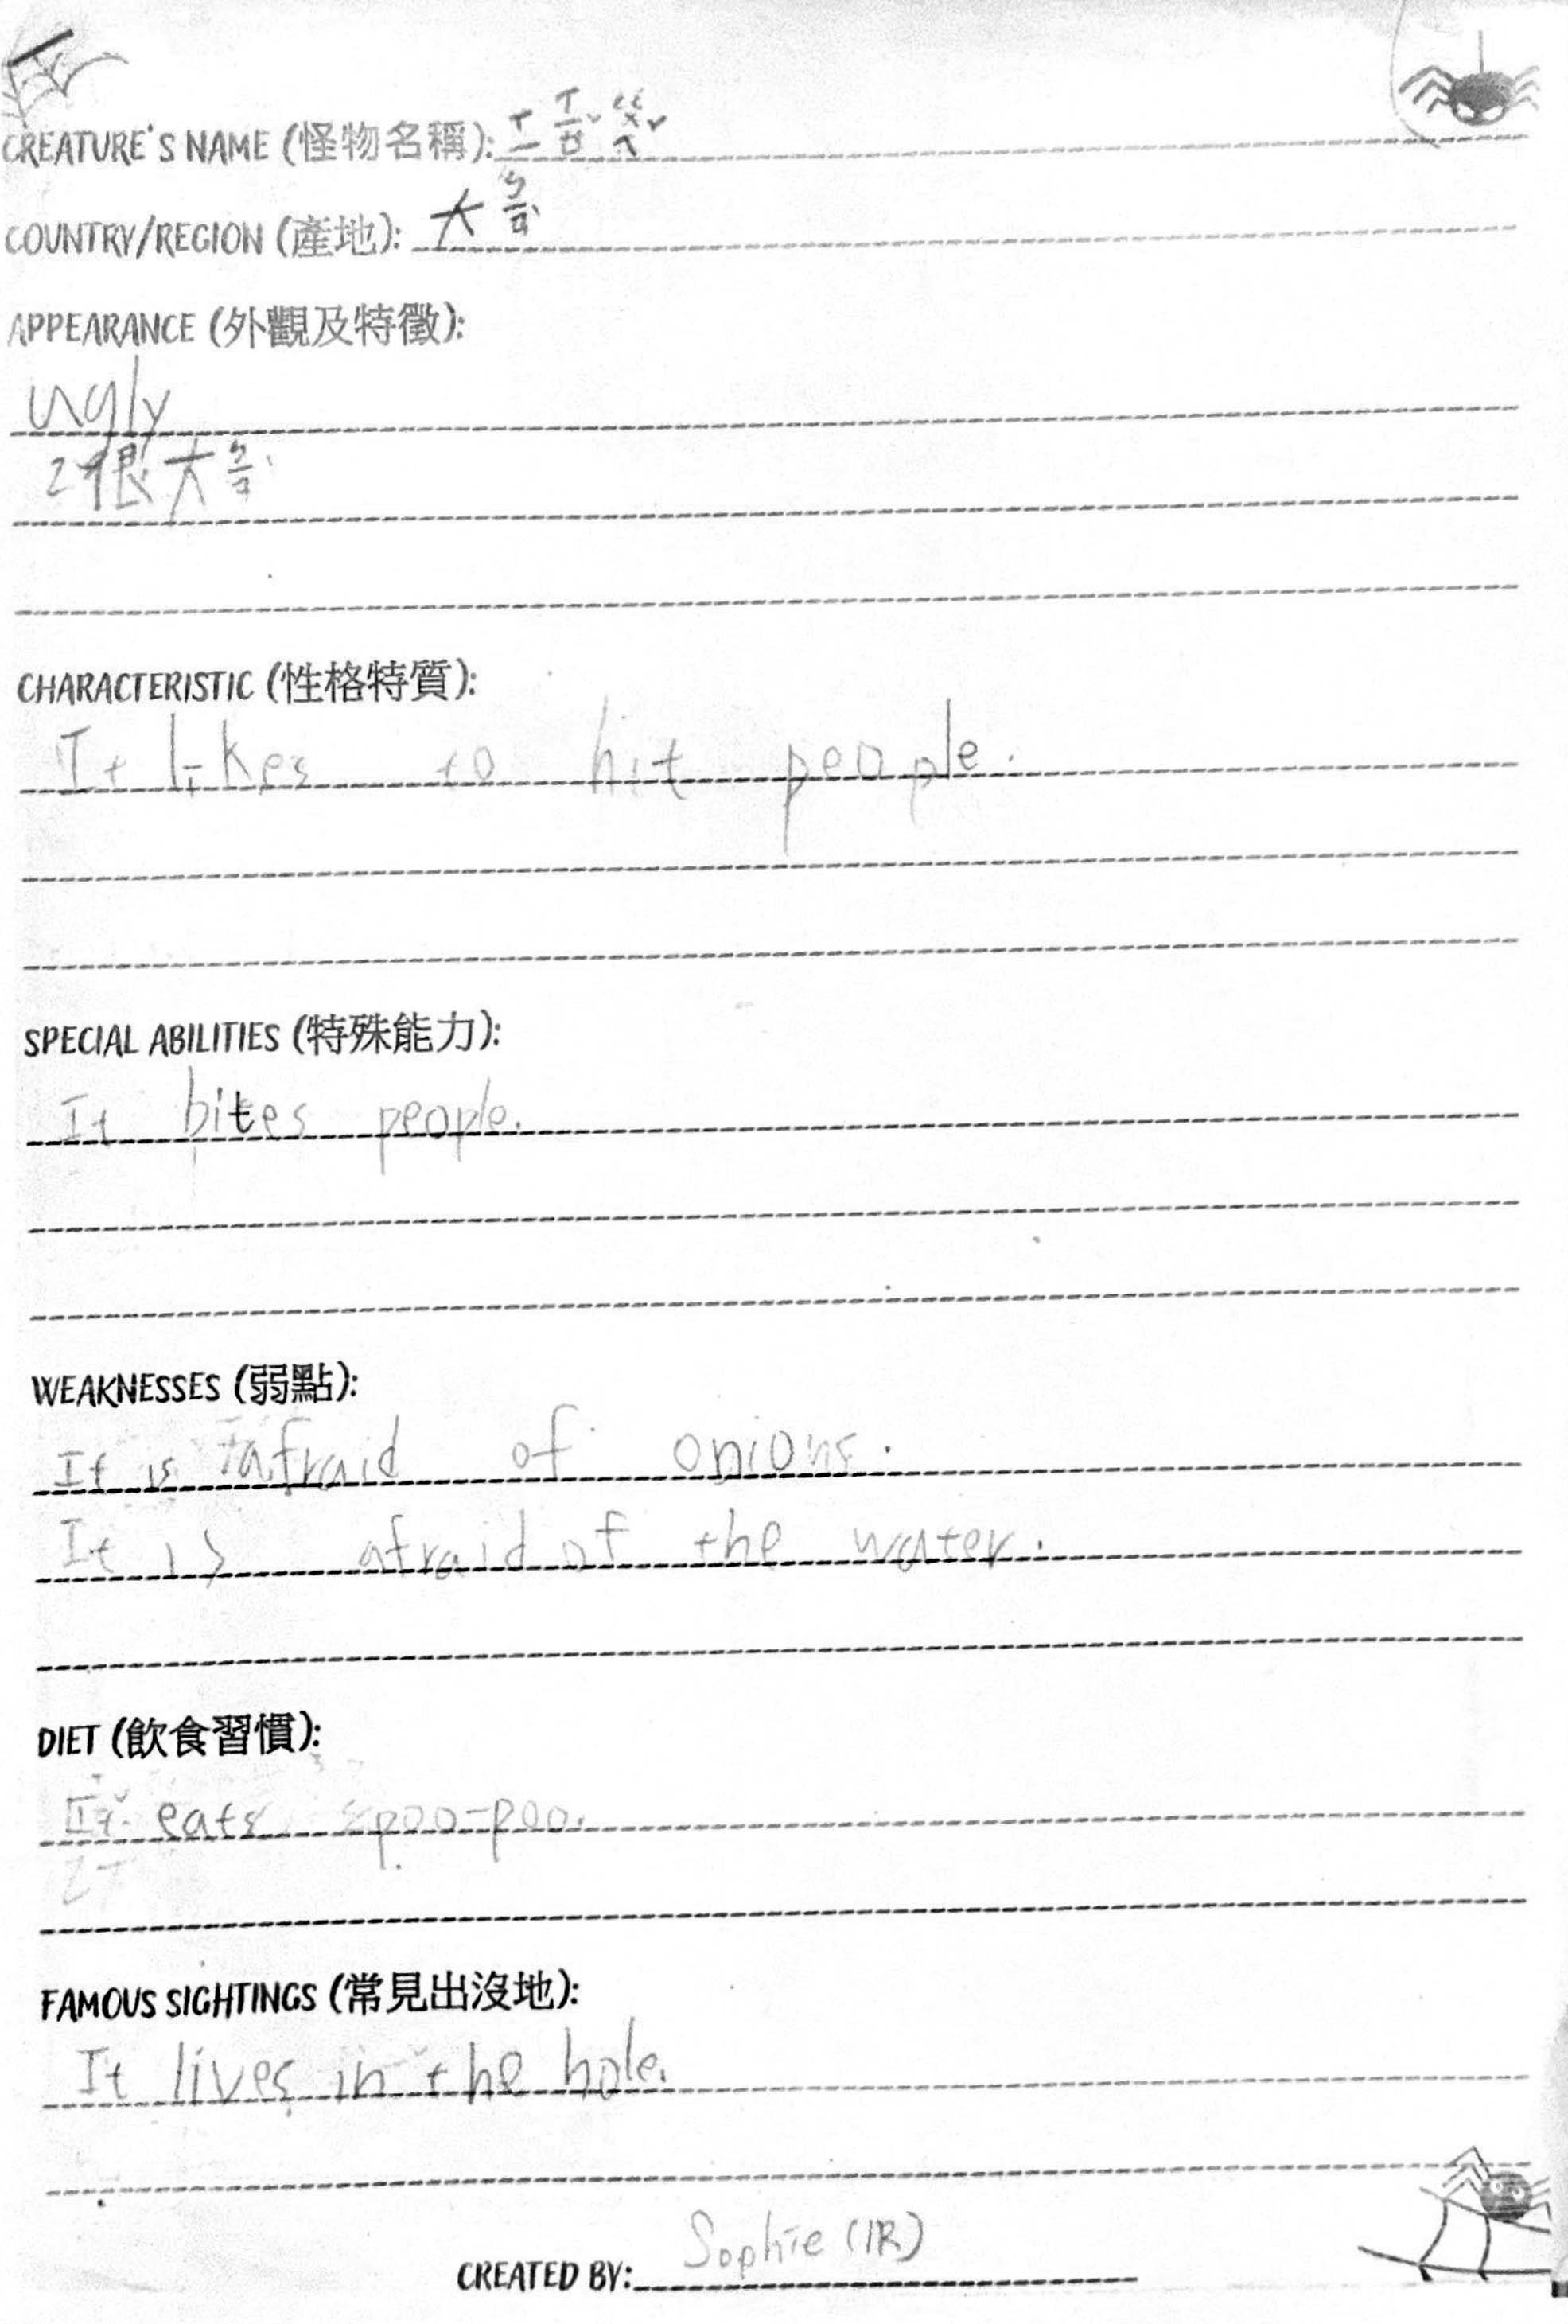 CREATURE'S NAME (怪物名稱):
COUNTRY/REGION (產地): 大
APPEARANCE (外觀及特徵):
ugly
2很大
CHARACTERISTIC (性格特質):
It likes to hit people.
SPECIAL ABILITIES (特殊能力):
It bites people.
WEAKNESSES (弱點):
It is afraid of onions.
It is afraid of the water.
DIET (飲食習慣):
It eats poo-poo.
FAMOUS SIGHTINGS (常見出沒地):
It lives in the hole.
CREATED BY: Sophie (1R)